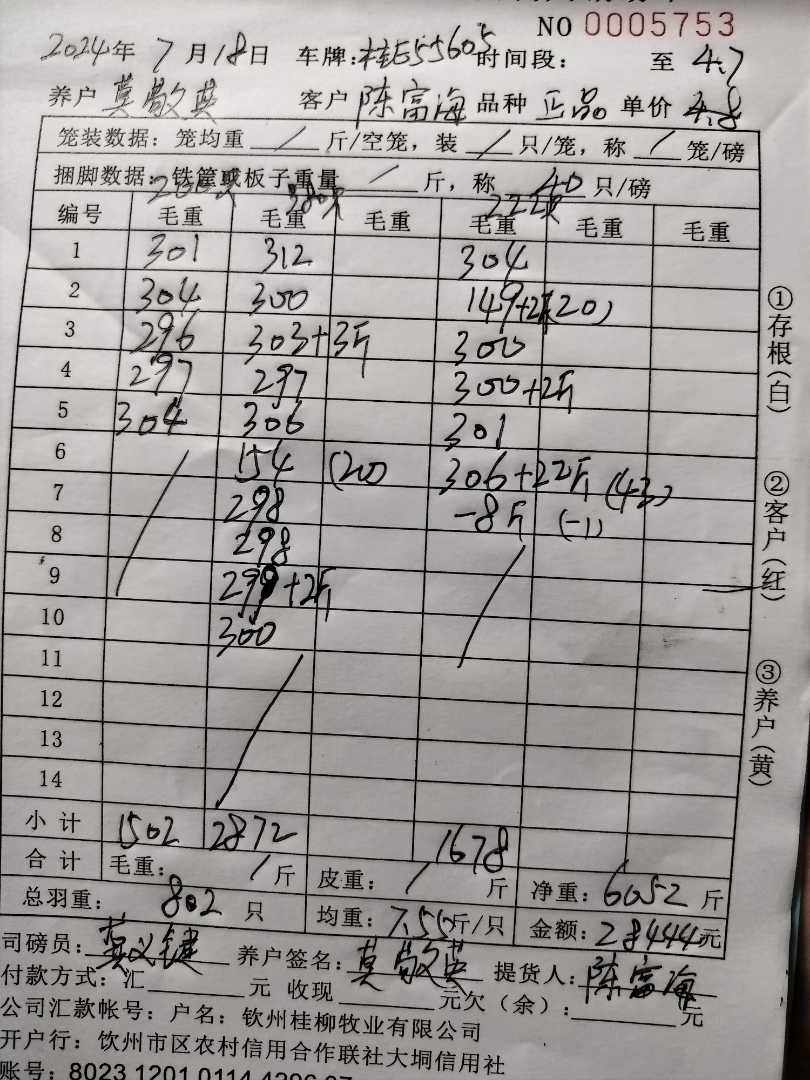 NO 0005753
2024年 7月18日 车牌:桂E55605 时间段: 至 4.7
养户 莫敬英 客户 陈富海 品种 正品 单价 4.8
笼装数据: 笼均重 / 斤/空笼, 装 / 只/笼, 称 / 笼/磅
捆脚数据: 铁筐或板子重量 / 斤, 称 40 只/磅
200只 380只 222只
编号 毛重 毛重 毛重 毛重 毛重 毛重
1 301 312 304
2 304 300 149+2斤(20)
3 296 303+3斤 300
4 297 297 300+2斤
5 304 306 301
6 154 (20) 306+22斤 (43)
7 298 -8斤 (-1)
8 298
9 299+2斤
10 300
11
12
13
14
小计 1502 2872 1678
合计 毛重: / 斤 皮重: / 斤 净重: 6052 斤
总羽重: 802 只 均重: 7.55斤/只 金额: 28444元
司磅员: 莫义键 养户签名: 莫敬英 提货人: 陈富海
付款方式: 汇 元 收现 元欠(余): 元
公司汇款帐号: 户名: 钦州桂柳牧业有限公司
开户行: 饮州市区农村信用合作联社大垌信用社
账号: 8023 1201 0114
①存根(白)
②客户(红)
③养户(黄)